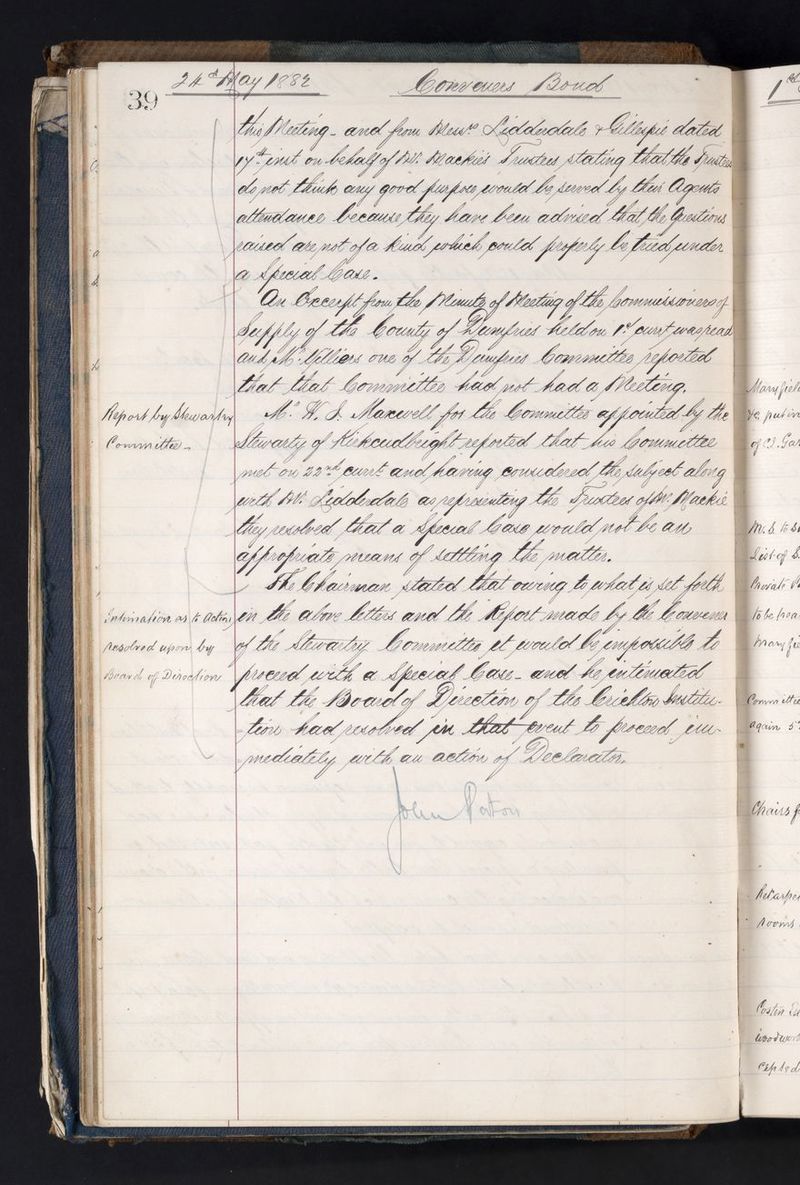 39
24th May 1882
Conveners Bond
this Meeting - and from Messrs Lidderdale & Gillespie dated
17th inst on behalf of Mr. Mackie's Trustees stating that the Trustees
do not think any good purpose would be served by their Agents
attendance because they have been advised that the Questions
raised are not of a kind which could properly be tried under
a Special Case.
An Excerpt from the Minute of Meeting of the Commissioners of
Supply of the County of Dumfries held on 1st curt was read
and Mr Villiers one of the Dumfries Committee reported
that that Committee had not had a Meeting.
Report by Stewartry
Committee -
Mr. W. J. Maxwell for the Committee appointed by the
Stewartry of Kirkcudbright reported that his Committee
met on 22nd curt and having considered the subject along
with Mr. Lidderdale as representing the Trustees of Mr. Mackie
they resolved that a Special Case would not be an
appropriate means of settling the matter.
Intimation as to Action
resolved upon by
Board of Direction
The Chairman stated that owing to what is set forth
in the above letters and the Report made by the Convener
of the Stewartry Committee it would be impossible to
proceed with a Special Case - and he intimated
that the Board of Direction of the Crichton Institu-
-tion had resolved in that event to proceed im-
-mediately with an action of Declarator.
John Paton
1st
Mayfield
&c put in
of
Mr. S. to
List of
Private
to be
Mayfie
Committee
again 5
Chairs f
rooms
woodwork